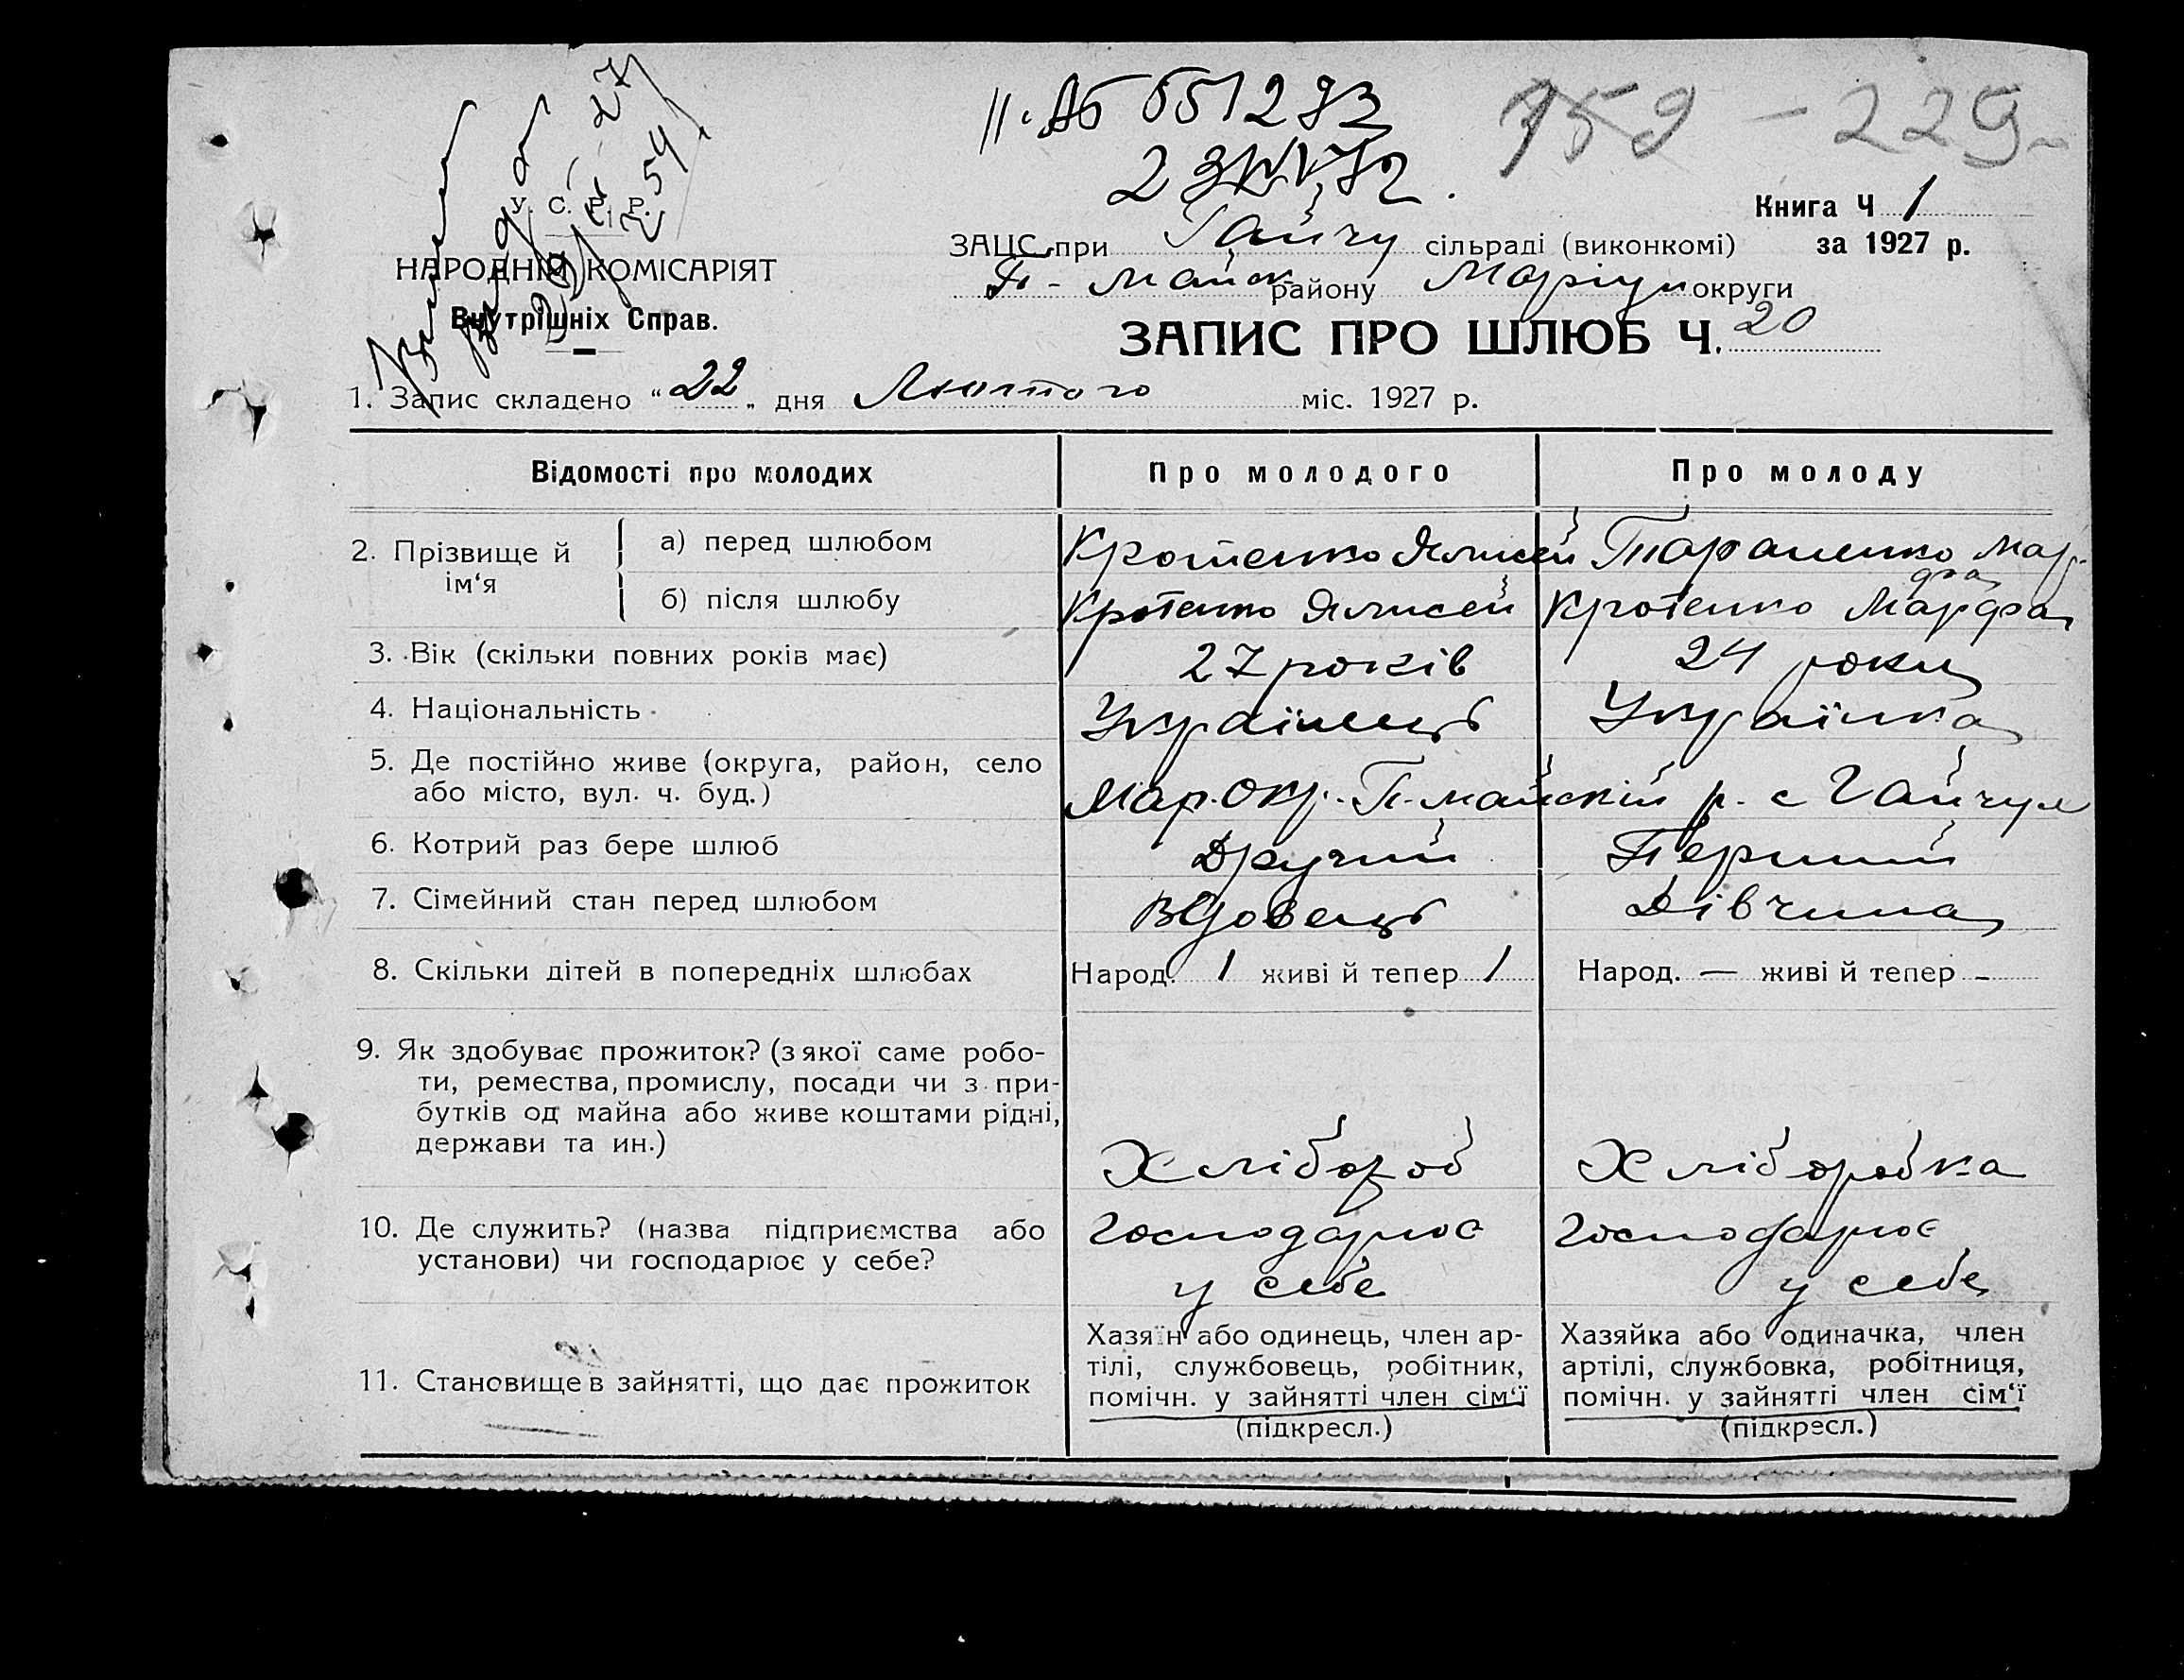 II-АБ 651293
159 - 229
У. С. Р. Р.
НАРОДНІЙ КОМІСАРІЯТ
Внутрішніх Справ.
Книга Ч 1
за 1927 р.
ЗАЦС при Гайчу сільраді (виконкомі)
П-Майск району Маріуп округи
ЗАПИС ПРО ШЛЮБ Ч. 20
1. Запис складено "22" дня Лютого міс. 1927 р.
Відомості про молодих
Про молодого
Про молоду
2. Прізвище й ім'я
а) перед шлюбом
Кротенко Ялисей
Тараненко Мар-
фа
б) після шлюбу
Кротенко Ялисей
Кротенко Марфа
3. Вік (скільки повних років має)
27 років
24 роки
4. Національність
Українець
Українка
5. Де постійно живе (округа, район, село
або місто, вул. ч. буд.)
Мар. Окр. П-майський р. с Гайчул
6. Котрий раз бере шлюб
Другий
Перший
7. Сімейний стан перед шлюбом
Вдовець
Дівчина
8. Скільки дітей в попередніх шлюбах
Народ. 1 живі й тепер 1
Народ. — живі й тепер -
9. Як здобуває прожиток? (з якої саме робо-
ти, ремества, промислу, посади чи з при-
бутків од майна або живе коштами рідні,
держави та ин.)
Хлібороб
Хліборобка
10. Де служить? (назва підприємства або
установи) чи господарює у себе?
Господарює
у себе
Господарює
у себе
11. Становище в зайнятті, що дає прожиток
Хазяїн або одинець, член ар-
тілі, службовець, робітник,
помічн. у зайнятті член сім'ї
(підкресл.)
Хазяйка або одиначка, член
артілі, службовка, робітниця,
помічн. у зайнятті член сім'ї
(підкресл.)